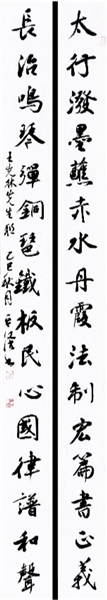 太行潑墨蘸赤水丹霞法制宏篇書正義
長治鳴琴彈銅琶鐵板民心國律譜和聲
乙巳秋月